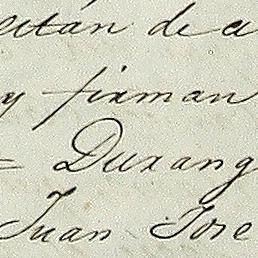 pitan de a
y firman
= Durang
Juan Jose